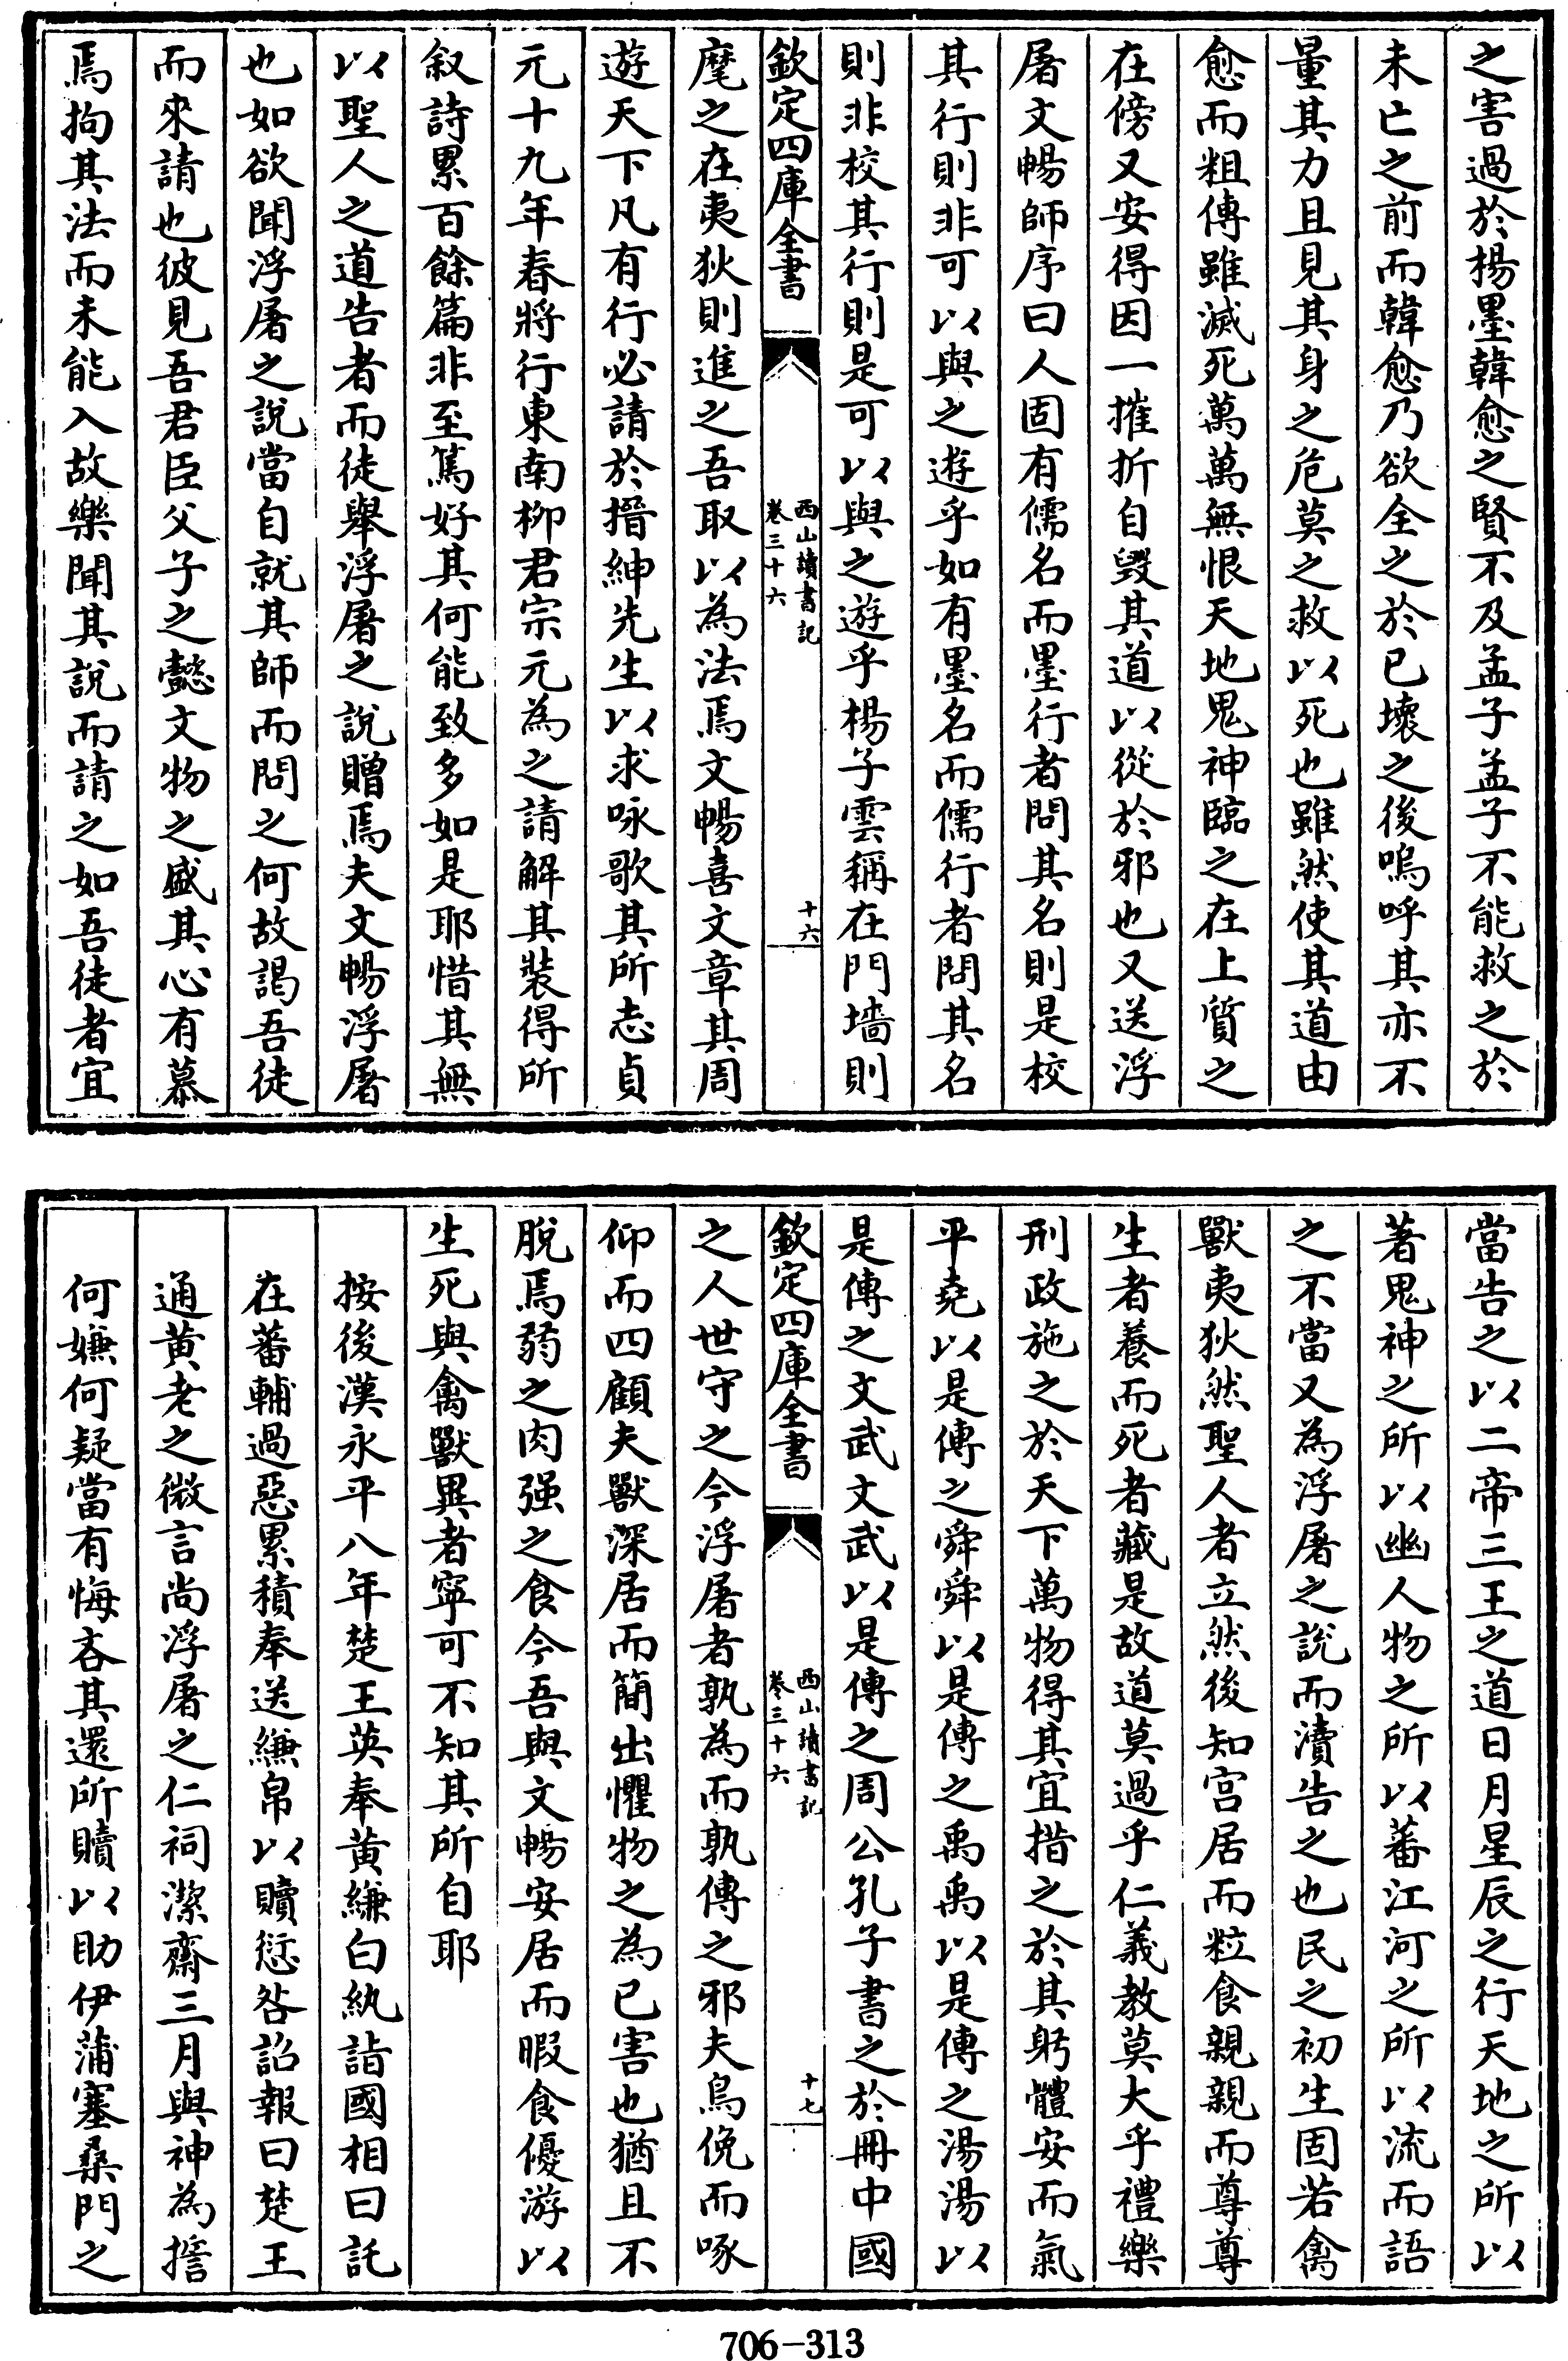 之害過於楊墨韓愈之賢不及孟子孟子不能救之於
未亡之前而韓愈乃欲全之於已壞之後嗚呼其亦不
量其力且見其身之危莫之救以死也雖然使其道由
愈而粗傳雖滅死萬萬無恨天地鬼神臨之在上質之
在傍又安得因一摧折自毀其道以從於邪也又送浮
屠文暢師序曰人固有儒名而墨行者問其名則是校
其行則非可以與之遊乎如有墨名而儒行者問其名
則非校其行則是可以與之遊乎楊子雲稱在門墻則
欽定四庫全書
西山讀書記
卷三十六
十六
麾之在夷狄則進之吾取以為法焉文暢喜文章其周
遊天下凡有行必請於搢紳先生以求咏歌其所志貞
元十九年春將行東南柳君宗元為之請解其裝得所
叙詩累百餘篇非至篤好其何能致多如是耶惜其無
以聖人之道告者而徒舉浮屠之說贈焉夫文暢浮屠
也如欲聞浮屠之說當自就其師而問之何故謁吾徒
而來請也彼見吾君臣父子之懿文物之盛其心有慕
焉拘其法而未能入故樂聞其說而請之如吾徒者宜
當告之以二帝三王之道日月星辰之行天地之所以
著鬼神之所以幽人物之所以蕃江河之所以流而語
之不當又為浮屠之說而瀆告之也民之初生固若禽
獸夷狄然聖人者立然後知宫居而粒食親親而尊尊
生者養而死者藏是故道莫過乎仁義教莫大乎禮樂
刑政施之於天下萬物得其宜措之於其躬體安而氣
平堯以是傳之舜舜以是傳之禹禹以是傳之湯湯以
是傳之文武文武以是傳之周公孔子書之於冊中國
欽定四庫全書
西山讀書記
卷三十六
十七
之人世守之今浮屠者孰為而孰傳之邪夫鳥俛而啄
仰而四顧夫獸深居而簡出懼物之為已害也猶且不
脫焉弱之肉强之食今吾與文暢安居而暇食優游以
生死與禽獸異者寧可不知其所自耶
按後漢永平八年楚王英奉黄縑白紈詣國相曰託
在蕃輔過惡累積奉送縑帛以贖愆咎詔報曰楚王
通黄老之微言尚浮屠之仁祠潔齋三月與神為誓
何嫌何疑當有悔吝其還所贖以助伊蒲塞桑門之
706-313